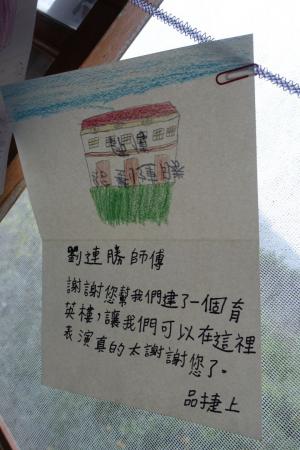 劉連勝師傅
謝謝您幫我們建了一個育
英樓，讓我們可以在這裡
表演真的太謝謝您了。
品捷上